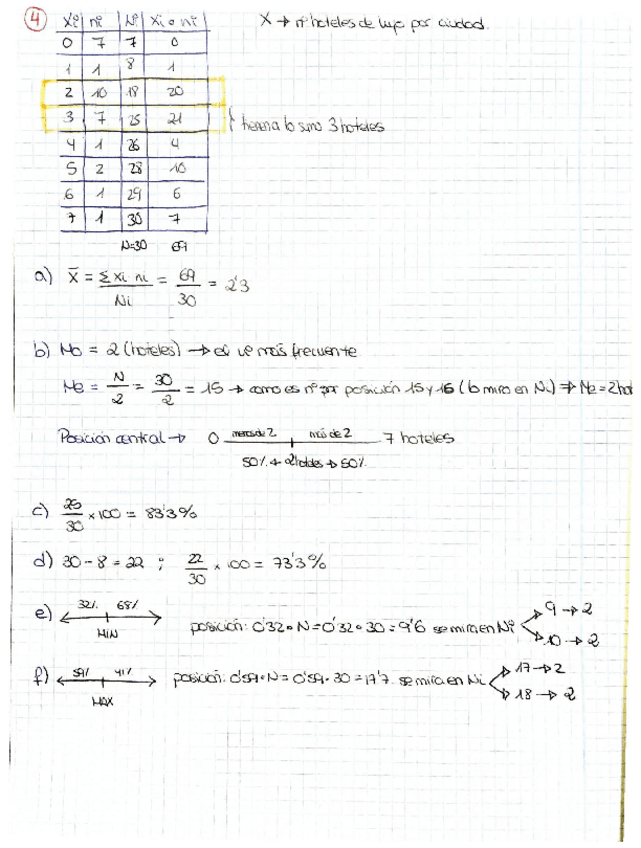 4
X → nº hoteles de lujo por ciudad.
xi | ni | Ni | xi · ni
0 | 7 | 7 | 0
1 | 1 | 8 | 1
2 | 10 | 18 | 20
3 | 7 | 25 | 21 } 3 hoteles
4 | 1 | 26 | 4
5 | 2 | 28 | 10
6 | 1 | 29 | 6
7 | 1 | 30 | 7
N=30 69
a) x̄ = Σ xi ni / Ni = 69/30 = 2'3
b) Mo = 2 (hoteles) → el nº más frecuente
Me = N/2 = 30/2 = 15 → como es nº par posición 15 y 16 (lo miro en Ni) ⇒ Me = 2 hot
Posición central → 0 menos de 2 más de 2 7 hoteles
50% ← 2 hoteles → 50%
c) 25/30 × 100 = 83'3%
d) 30 - 8 = 22 ; 22/30 × 100 = 73'3%
e) 32% 68% MIN posición: 0'32 · N = 0'32 · 30 = 9'6 se mira en Ni 9 → 2
10 → 2
f) 59% 41% MAX posición: 0'59 · N = 0'59 · 30 = 17'7 se mira en Ni 17 → 2
18 → 2